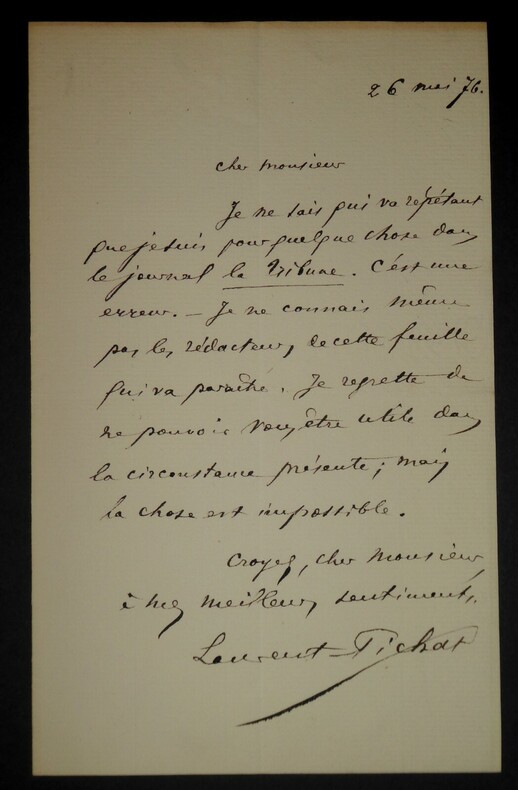 26 mai 76.
cher monsieur
Je ne sais qui va répétant
que je suis pour quelque chose dans
le journal la Tribune. C'est une
erreur. — Je ne connais même
pas les rédacteurs de cette feuille
qui va paraître. Je regrette de
ne pouvoir vous être utile dans
la circonstance présente ; mais
la chose est impossible.
Croyez, cher Monsieur,
à mes meilleurs sentiments.
Laurent-Pichat